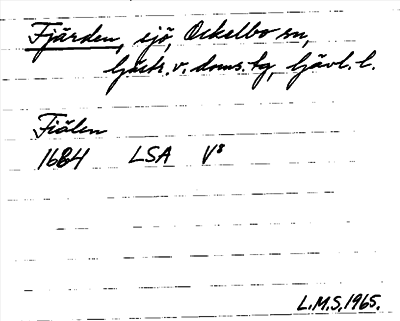 Fjärden, sjö, Ockelbo sn,
Gästr. v. doms. tg, Gävl. l.
Fiälen
1684 LSA V8
L.M.S. 1965.